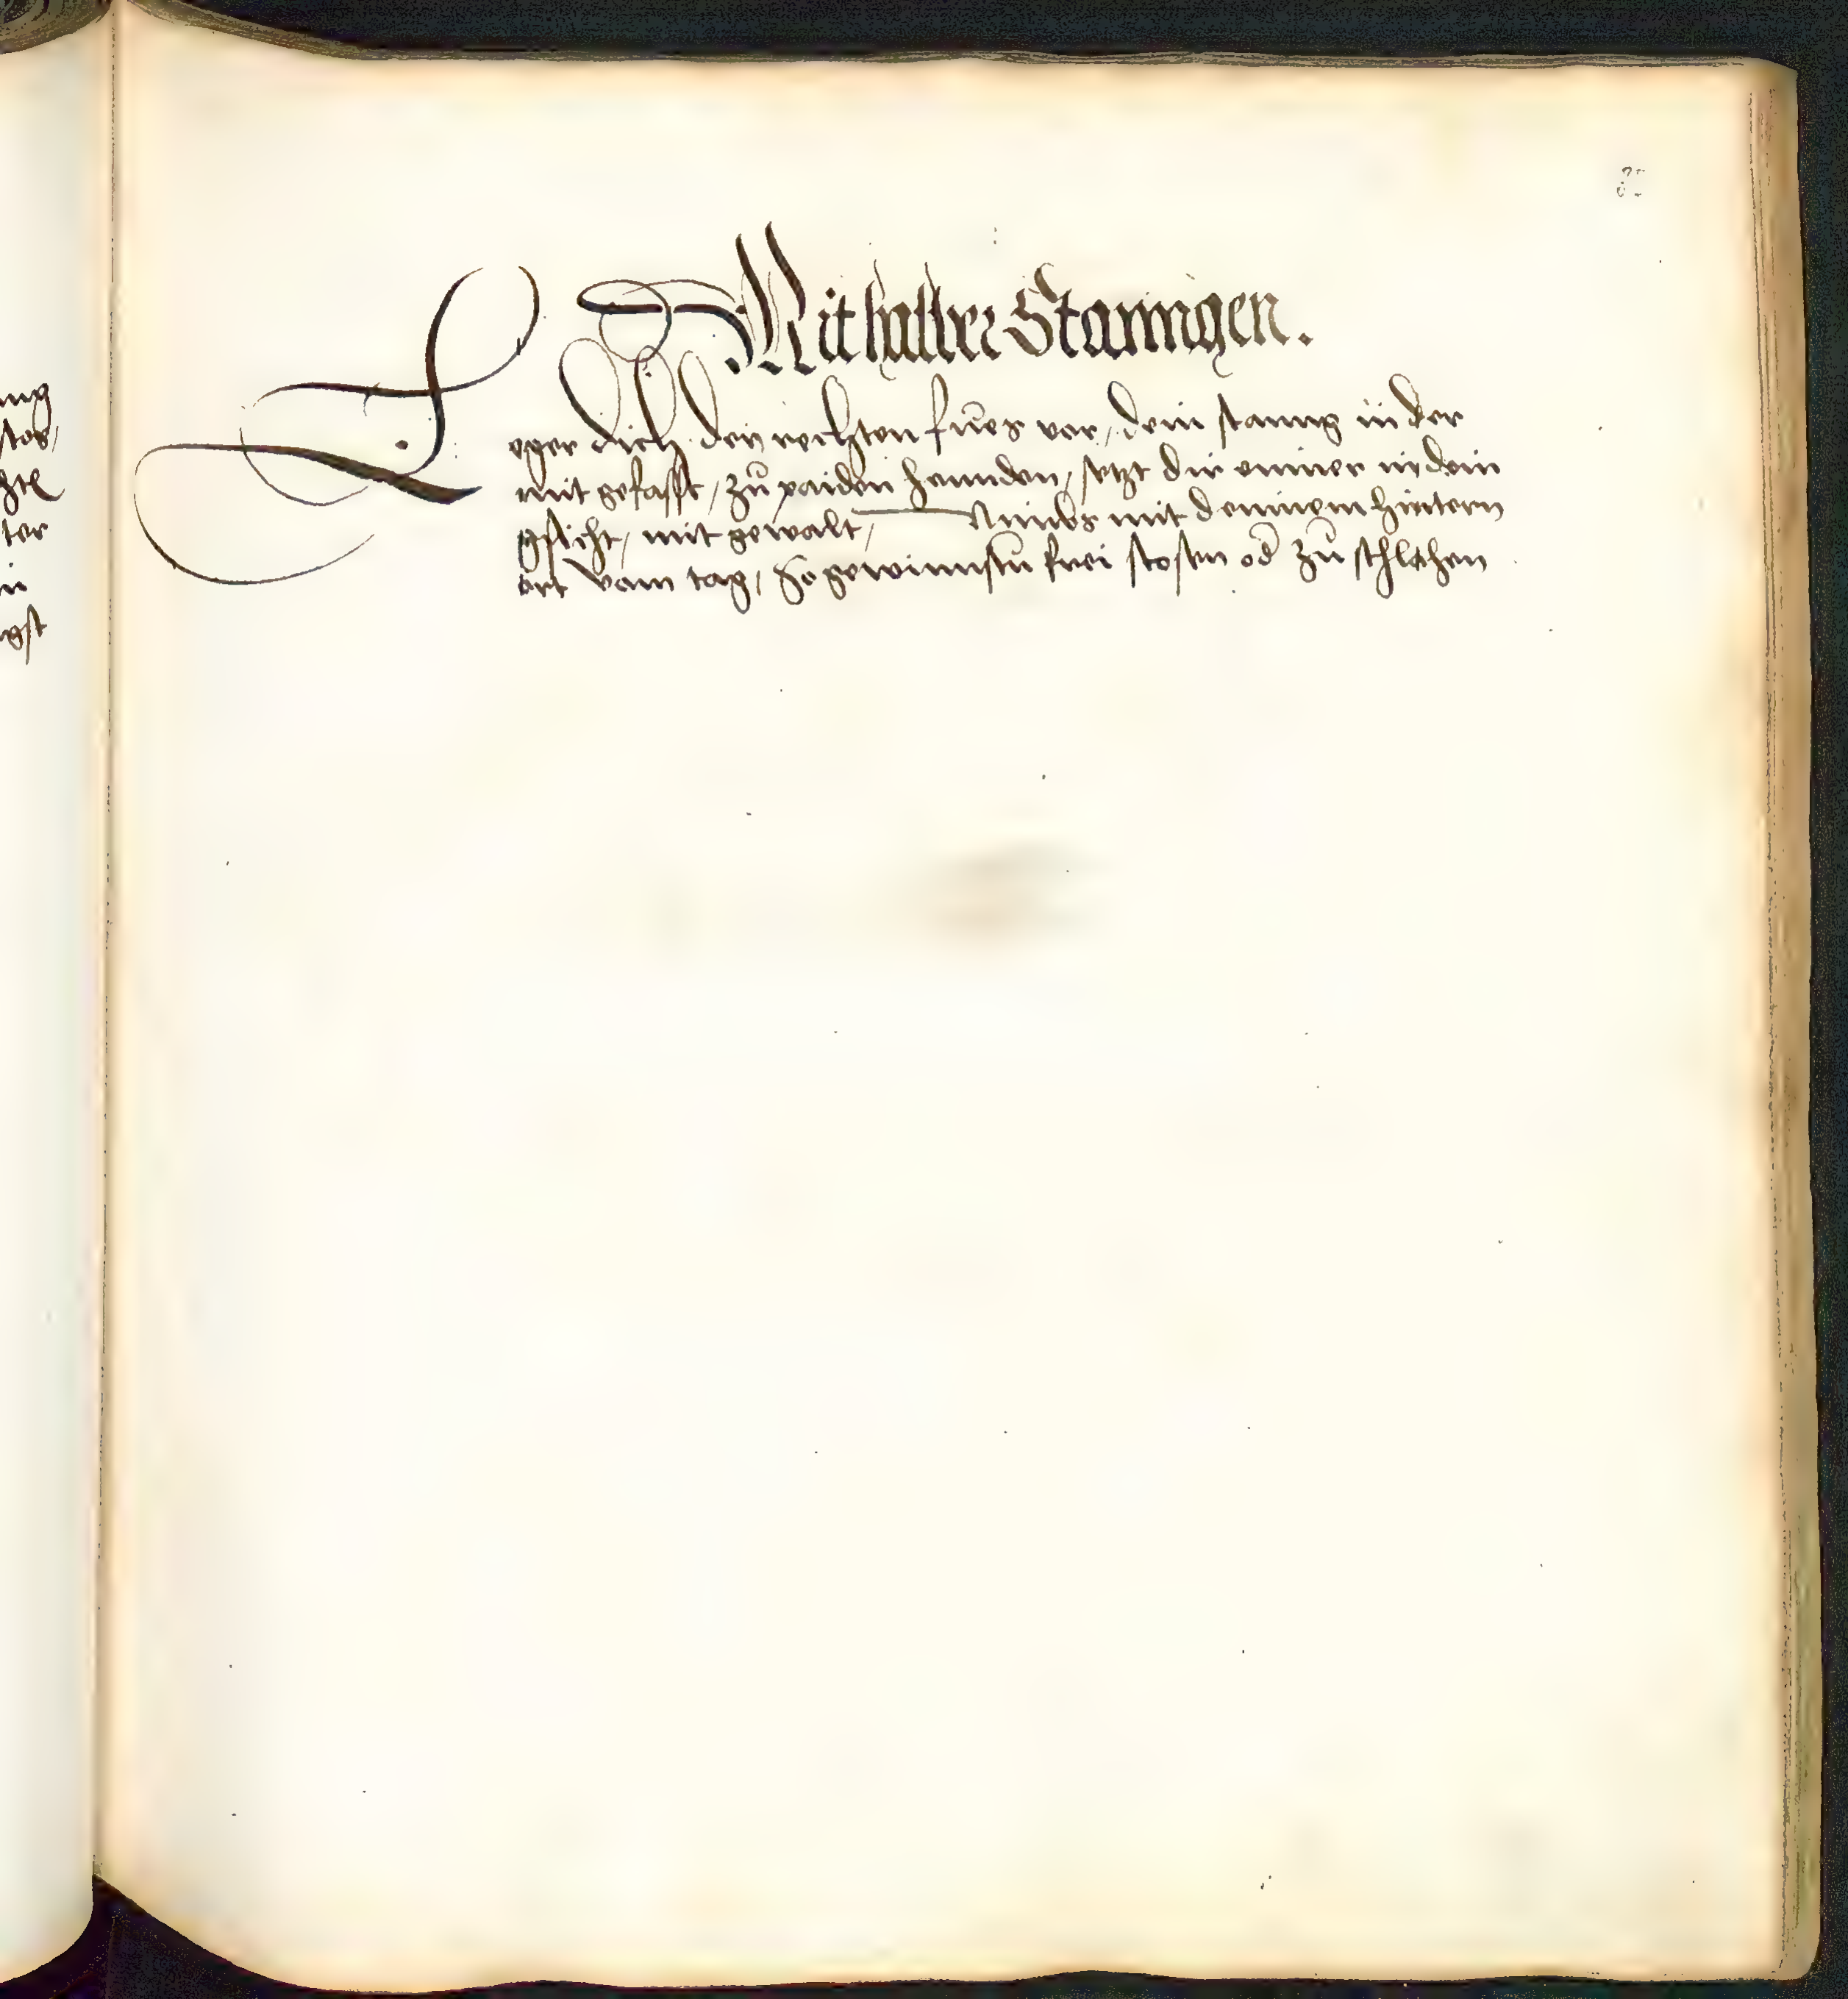 Mit halber Stanngen.
Leger dich den rechten fües vor, dein stanng in der
mit gefasst, zů paiden hennden, setzt dir einner in dein
gsicht, mit gewalt, Nimbs mit deninem hintern
ort vom tag, So gewinnstu frei stosen od zů schlahen
ter
gst